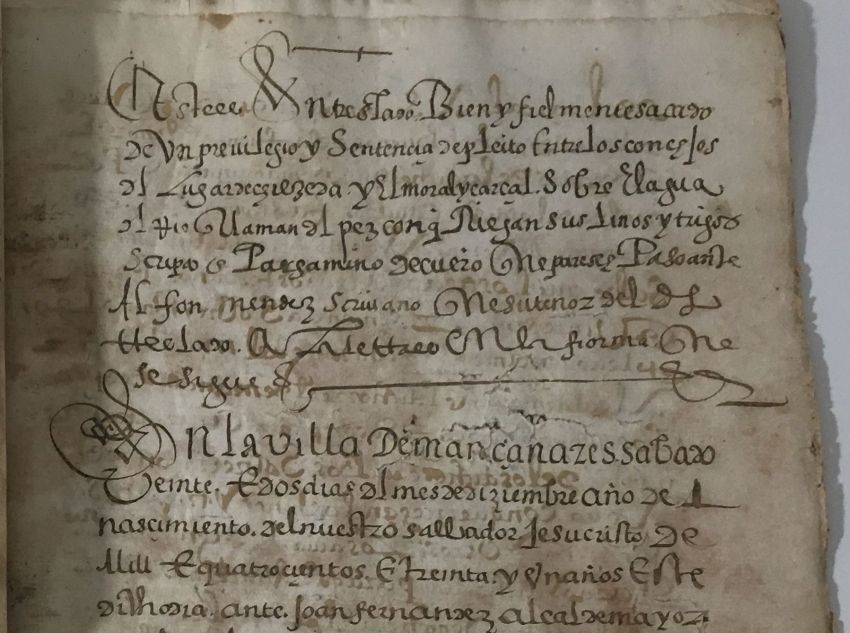 Este es Un treslado Bien y fielmente sacado
de Un preuilegio y Sentencia de pleito Entre los conçejos
del Lugar de çerezeda y El moral y carçal. Sobre El agua
del Rio Que llaman del pez con q Riegan sus linos y trigos
Scripto en Pargamino de cuero Que pareçe Paso ante
Alfon mendez Scriuano Que su tenor del dho
treslado. A la letra En la forma Que
se sigue
En la villa De mançanares sabado
Veinte. E dos dias del mes de diziembre año de L
nascimiento. del nuestro salluador Jesucristo, De
Mill E quatroçientos. E treinta. y Un años Este
dithodia. ante. Joan fernandez alcalde mayor